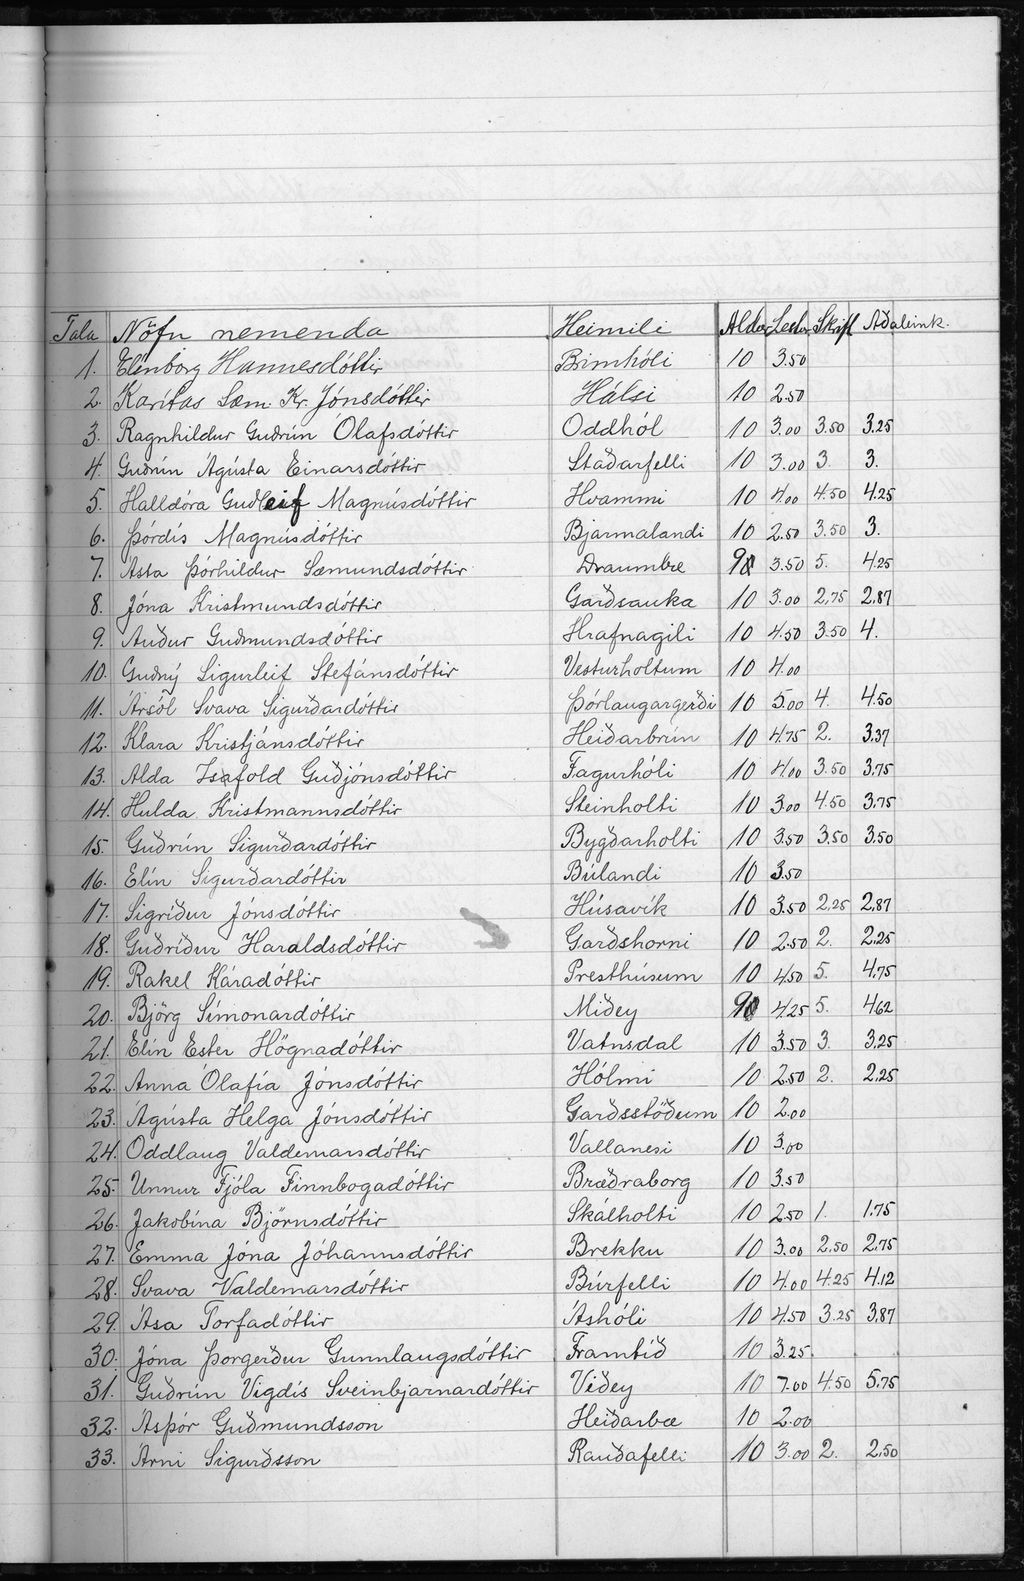 Tala Nöfn nemenda Heimili Aldur Lestur Skift Aðaleink.
1. Elínborg Hannesdóttir Brimhóli 10 3.50
2. Karítas Sæm. Kr. Jónsdóttir Hálsi 10 2.50
3. Ragnhildur Guðrún Ólafsdóttir Oddhól 10 3.00 3.50 3.25
4. Guðrún Ágústa Einarsdóttir Staðarfelli 10 3.00 3. 3.
5. Halldóra Guðleif Magnúsdóttir Hvammi 10 4.00 4.50 4.25
6. Þórdís Magnúsdóttir Bjarmalandi 10 2.50 3.50 3.
7. Ásta Þórhildur Sæmundsdóttir Draumbæ 9 3.50 5. 4.25
8. Jóna Kristmundsdóttir Garðsauka 10 3.00 2.75 2.87
9. Auður Guðmundsdóttir Hrafnagili 10 4.50 3.50 4.
10. Guðný Sigurleif Stefánsdóttir Vesturholtum 10 4.00
11. Ársól Svava Sigurðardóttir Þórlaugargerði 10 5.00 4. 4.50
12. Klara Kristjánsdóttir Heiðarbrún 10 4.75 2. 3.37
13. Alda Ísafold Guðjónsdóttir Fagurhóli 10 4.00 3.50 3.75
14. Hulda Kristmannsdóttir Steinholti 10 3.00 4.50 3.75
15. Guðrún Sigurðardóttir Bygðarholti 10 3.50 3.50 3.50
16. Elín Sigurðardóttir Búlandi 10 3.50
17. Sigríður Jónsdóttir Húsavík 10 3.50 2.25 2.87
18. Guðríður Haraldsdóttir Garðshorni 10 2.50 2. 2.25
19. Rakel Káradóttir Presthúsum 10 4.50 5. 4.75
20. Björg Símonardóttir Miðey 9 4.25 5. 4.62
21. Elín Ester Högnadóttir Vatnsdal 10 3.50 3. 3.25
22. Anna Ólafía Jónsdóttir Hólmi 10 2.50 2. 2.25
23. Ágústa Helga Jónsdóttir Garðsstöðum 10 2.00
24. Oddlaug Valdemarsdóttir Vallanesi 10 3.00
25. Unnur Fjóla Finnbogadóttir Bræðraborg 10 3.50
26. Jakobína Björnsdóttir Skálholti 10 2.50 1. 1.75
27. Emma Jóna Jóhannsdóttir Brekku 10 3.00 2.50 2.75
28. Svava Valdemarsdóttir Búrfelli 10 4.00 4.25 4.12
29. Ása Torfadóttir Áshóli 10 4.50 3.25 3.87
30. Jóna Þorgerður Gunnlaugsdóttir Framtíð 10 3.25
31. Guðrún Vigdís Sveinbjarnardóttir Viðey 10 7.00 4.50 5.75
32. Ásþór Guðmundsson Heiðarbæ 10 2.00
33. Árni Sigurðsson Rauðafelli 10 3.00 2. 2.50